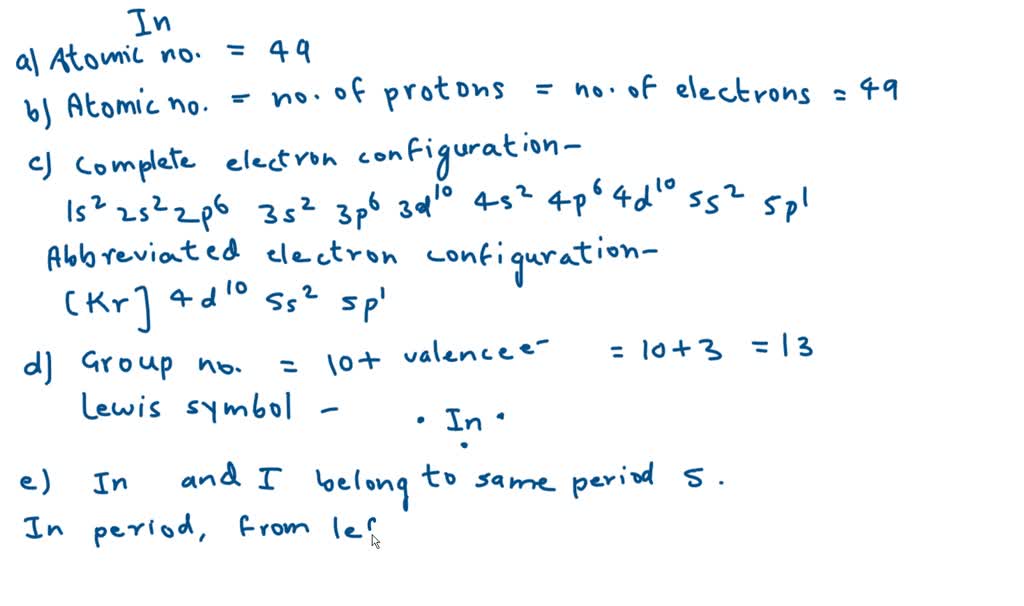 In
a) Atomic no. = 49
b) Atomic no. = no. of protons = no. of electrons = 49
c) Complete electron configuration-
1s² 2s² 2p⁶ 3s² 3p⁶ 3d¹⁰ 4s² 4p⁶ 4d¹⁰ 5s² 5p¹
Abbreviated electron configuration-
[Kr] 4d¹⁰ 5s² 5p¹
d) Group no. = 10+ valence e⁻ = 10+3 = 13
Lewis symbol - · In ·
e) In and I belong to same period 5.
In period, from lef